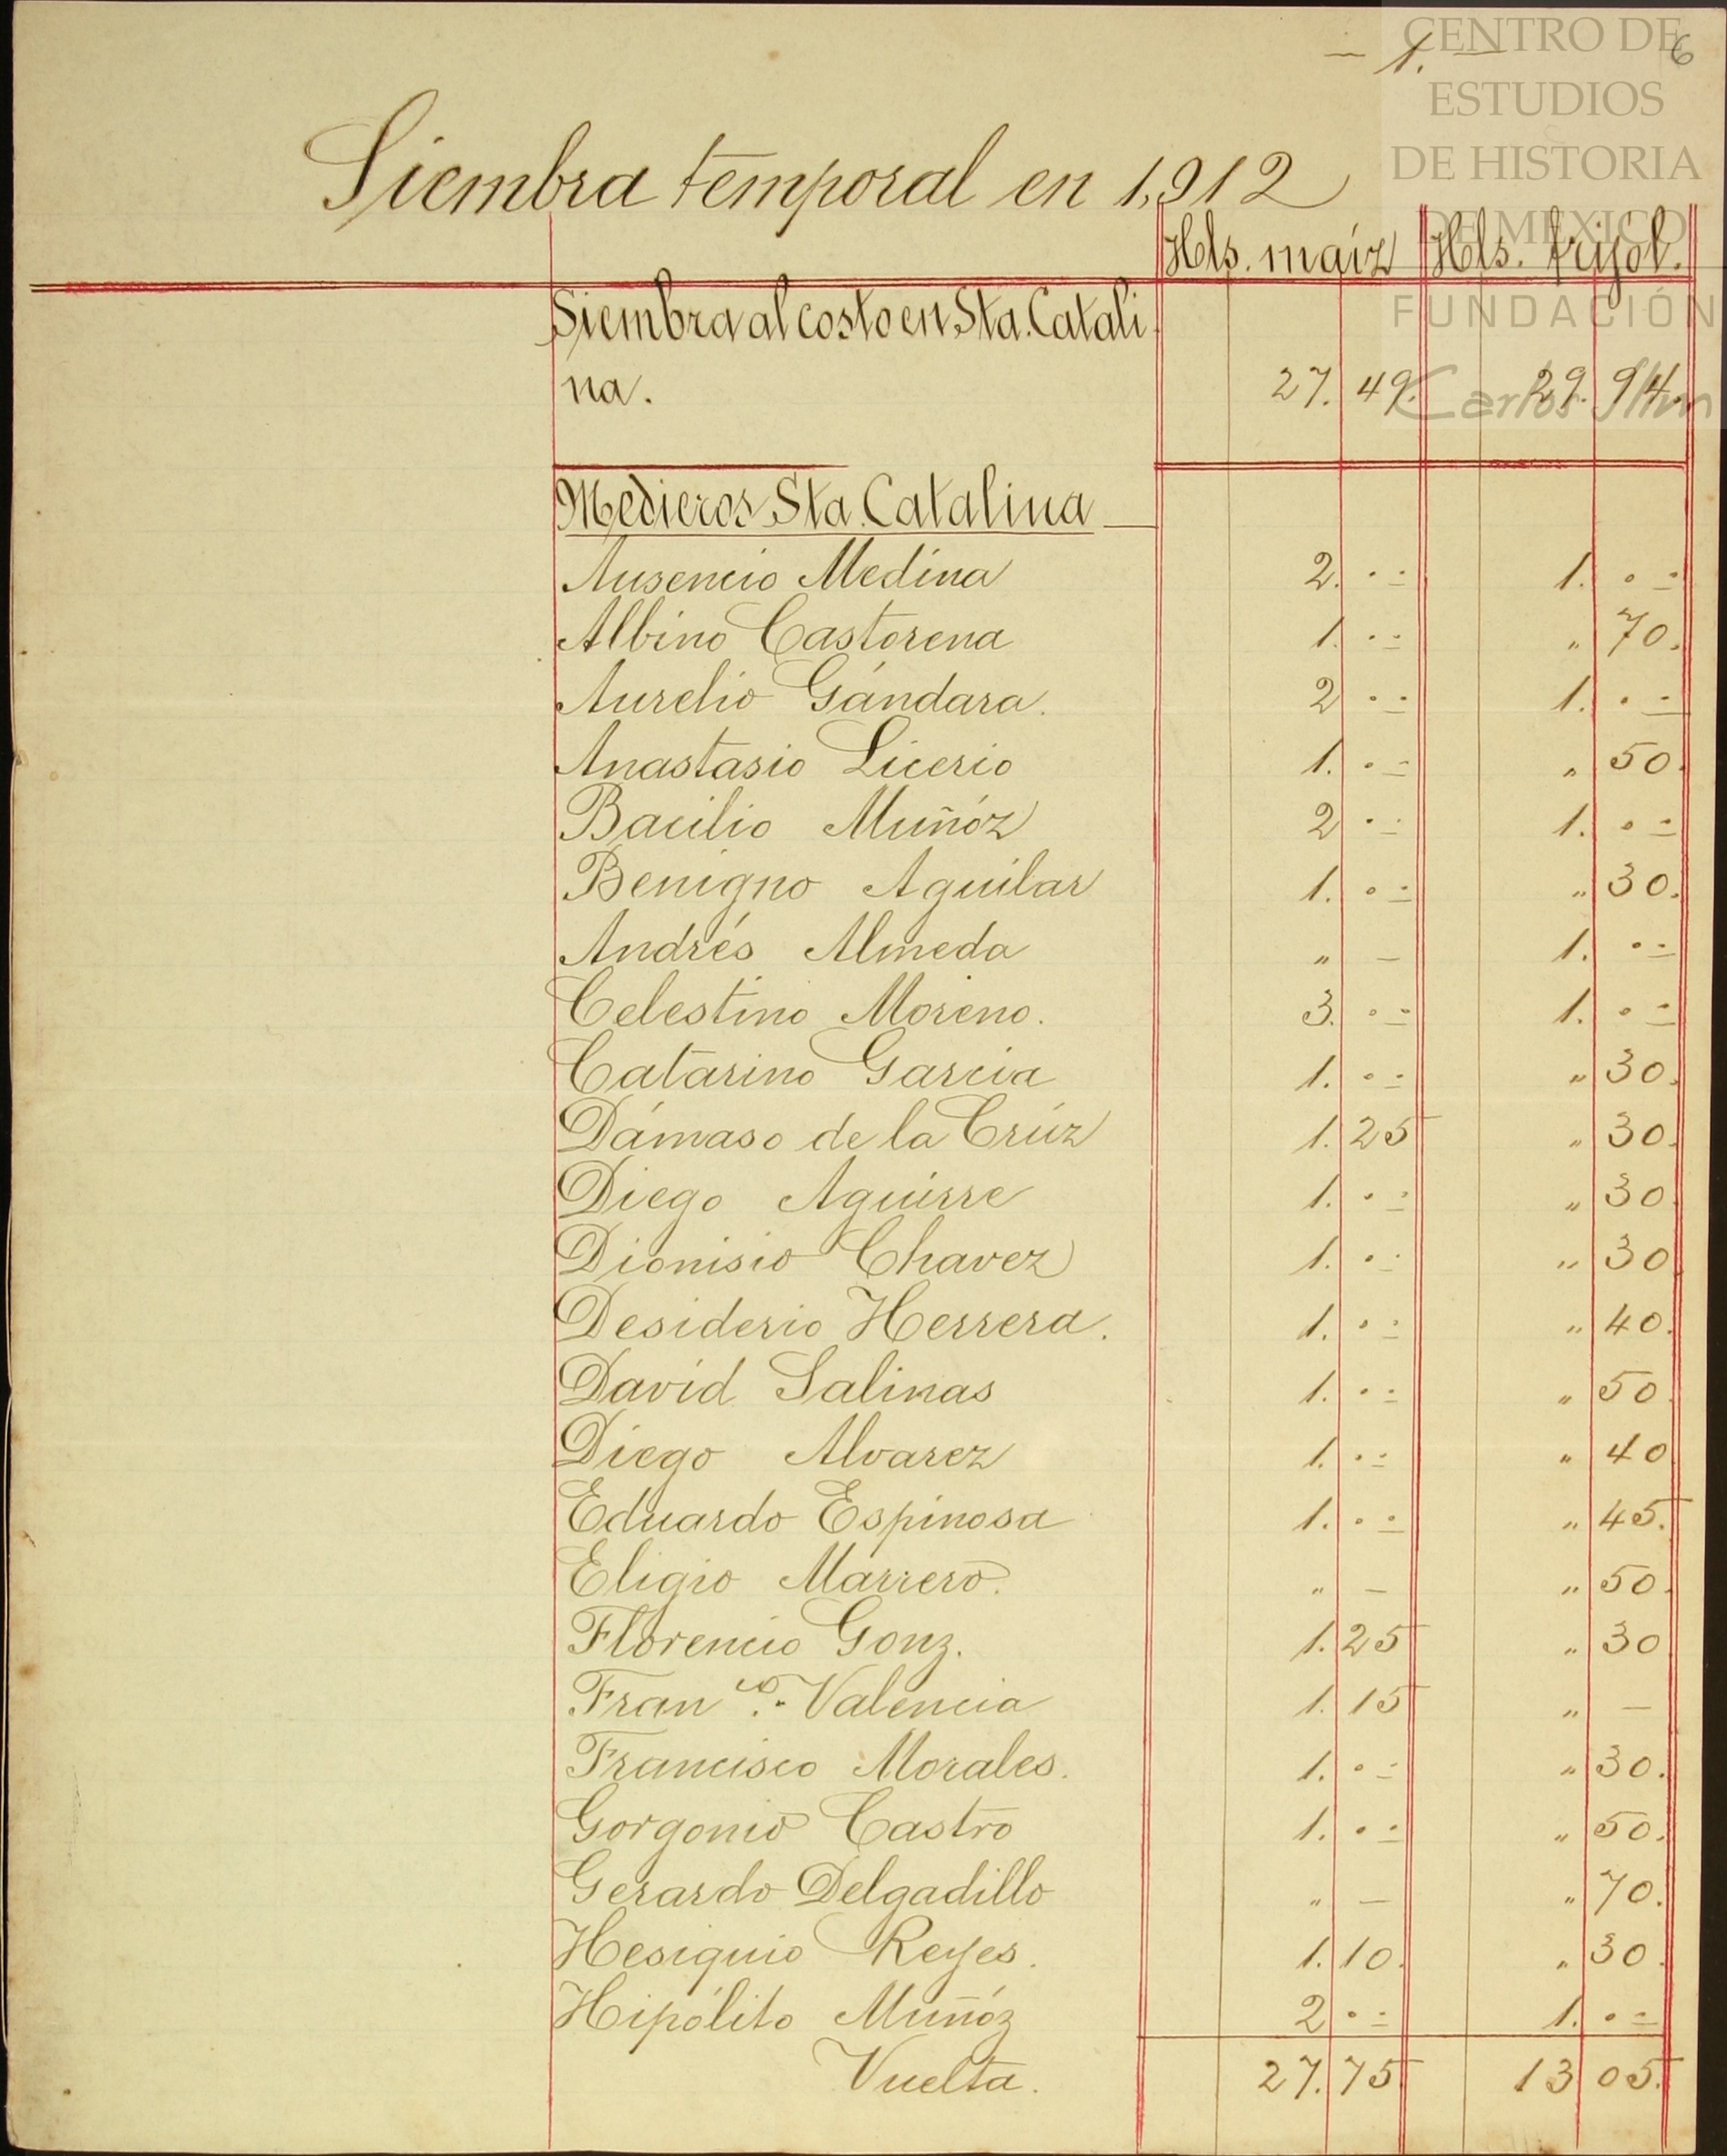 - 1. -
6
CENTRO DE
ESTUDIOS
DE HISTORIA
DE MEXICO
FUNDACIÓN
Carlos Slim
Siembra temporal en 1,912
Hls. maíz Hls. frijol.
Siembra al costo en Sta. Catali
na. 27. 49. 29. 94.
Medieros Sta. Catalina
Ausencio Medina 2. .. 1. ..
Albino Castorena 1. .. " 70.
Aurelio Gándara. 2 .. 1. ..
Anastasio Licerio 1. .. " 50.
Bacilio Muñóz 2 .. 1. ..
Benigno Aguilar 1. .. " 30.
Andrés Almeda " — 1. ..
Celestino Moreno. 3. .. 1. ..
Catarino Garcia 1. .. " 30.
Dámaso de la Crúz 1. 25 " 30.
Diego Aguirre 1. .. " 30
Dionisio Chavez 1. .. " 30
Desiderio Herrera. 1. .. " 40.
David Salinas 1. .. " 50
Diego Alvarez 1. .. " 40
Eduardo Espinosa 1. .. " 45.
Eligio Marrero. " — " 50.
Florencio Gonz. 1. 25 " 30
Franco. Valencia 1. 15 " —
Francisco Morales. 1. .. " 30.
Gorgonio Castro 1. .. " 50.
Gerardo Delgadillo " — " 70.
Hesiquio Reyes. 1. 10. " 30.
Hipólito Muñóz 2 .. 1. ..
Vuelta. 27. 75 13 05.